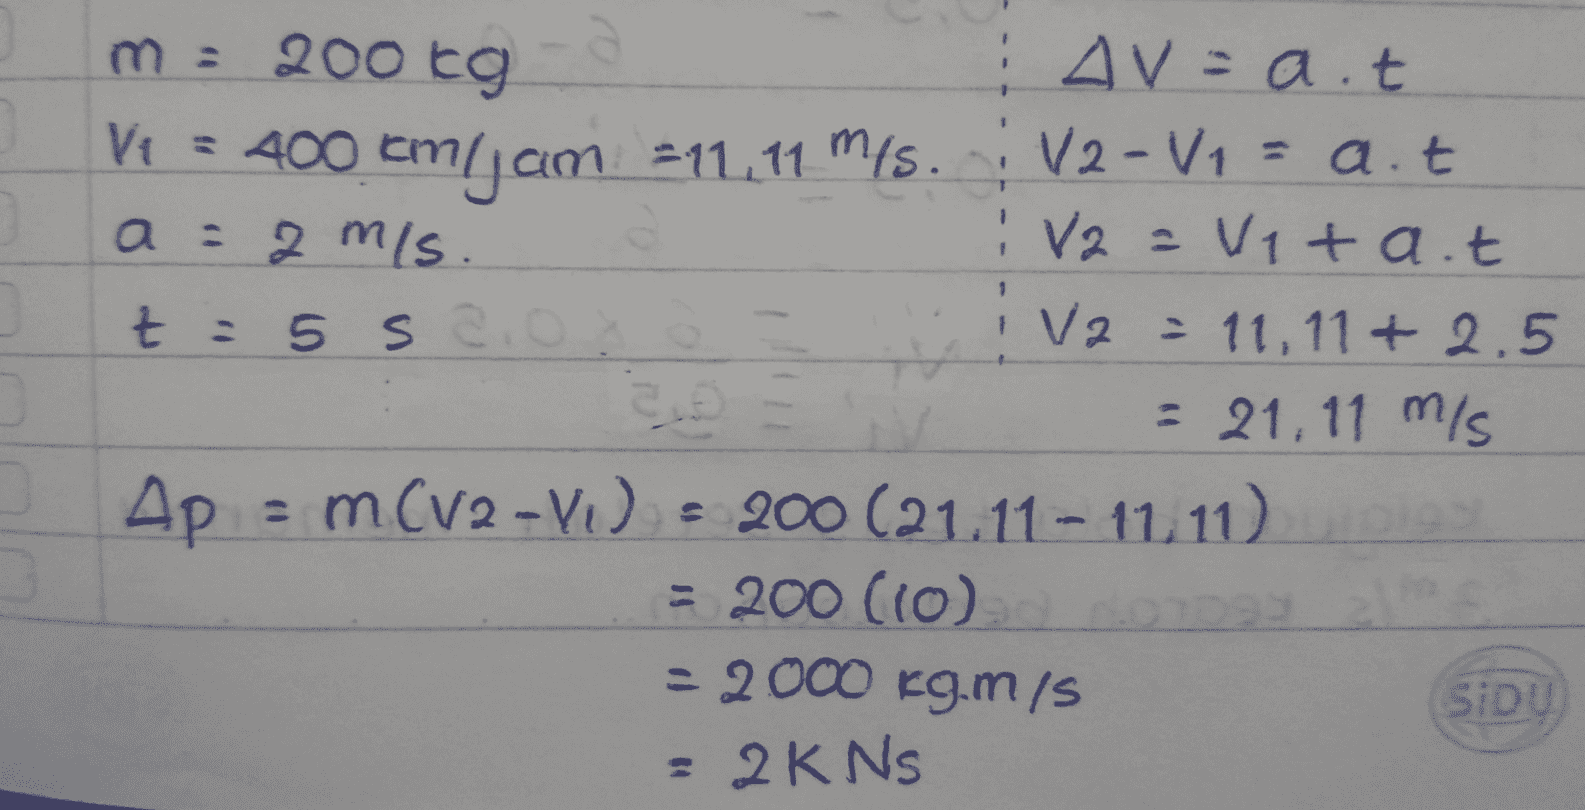 m = 200 kg
V1 = 400 km/jam = 11,11 m/s.
a = 2 m/s.
t = 5 s
ΔV = a.t
V2 - V1 = a.t
V2 = V1 + a.t
V2 = 11,11 + 2.5
= 21,11 m/s
Δp = m(V2 - V1) = 200 (21,11 - 11,11)
= 200 (10)
= 2000 kg.m/s
= 2 K Ns
SiDU